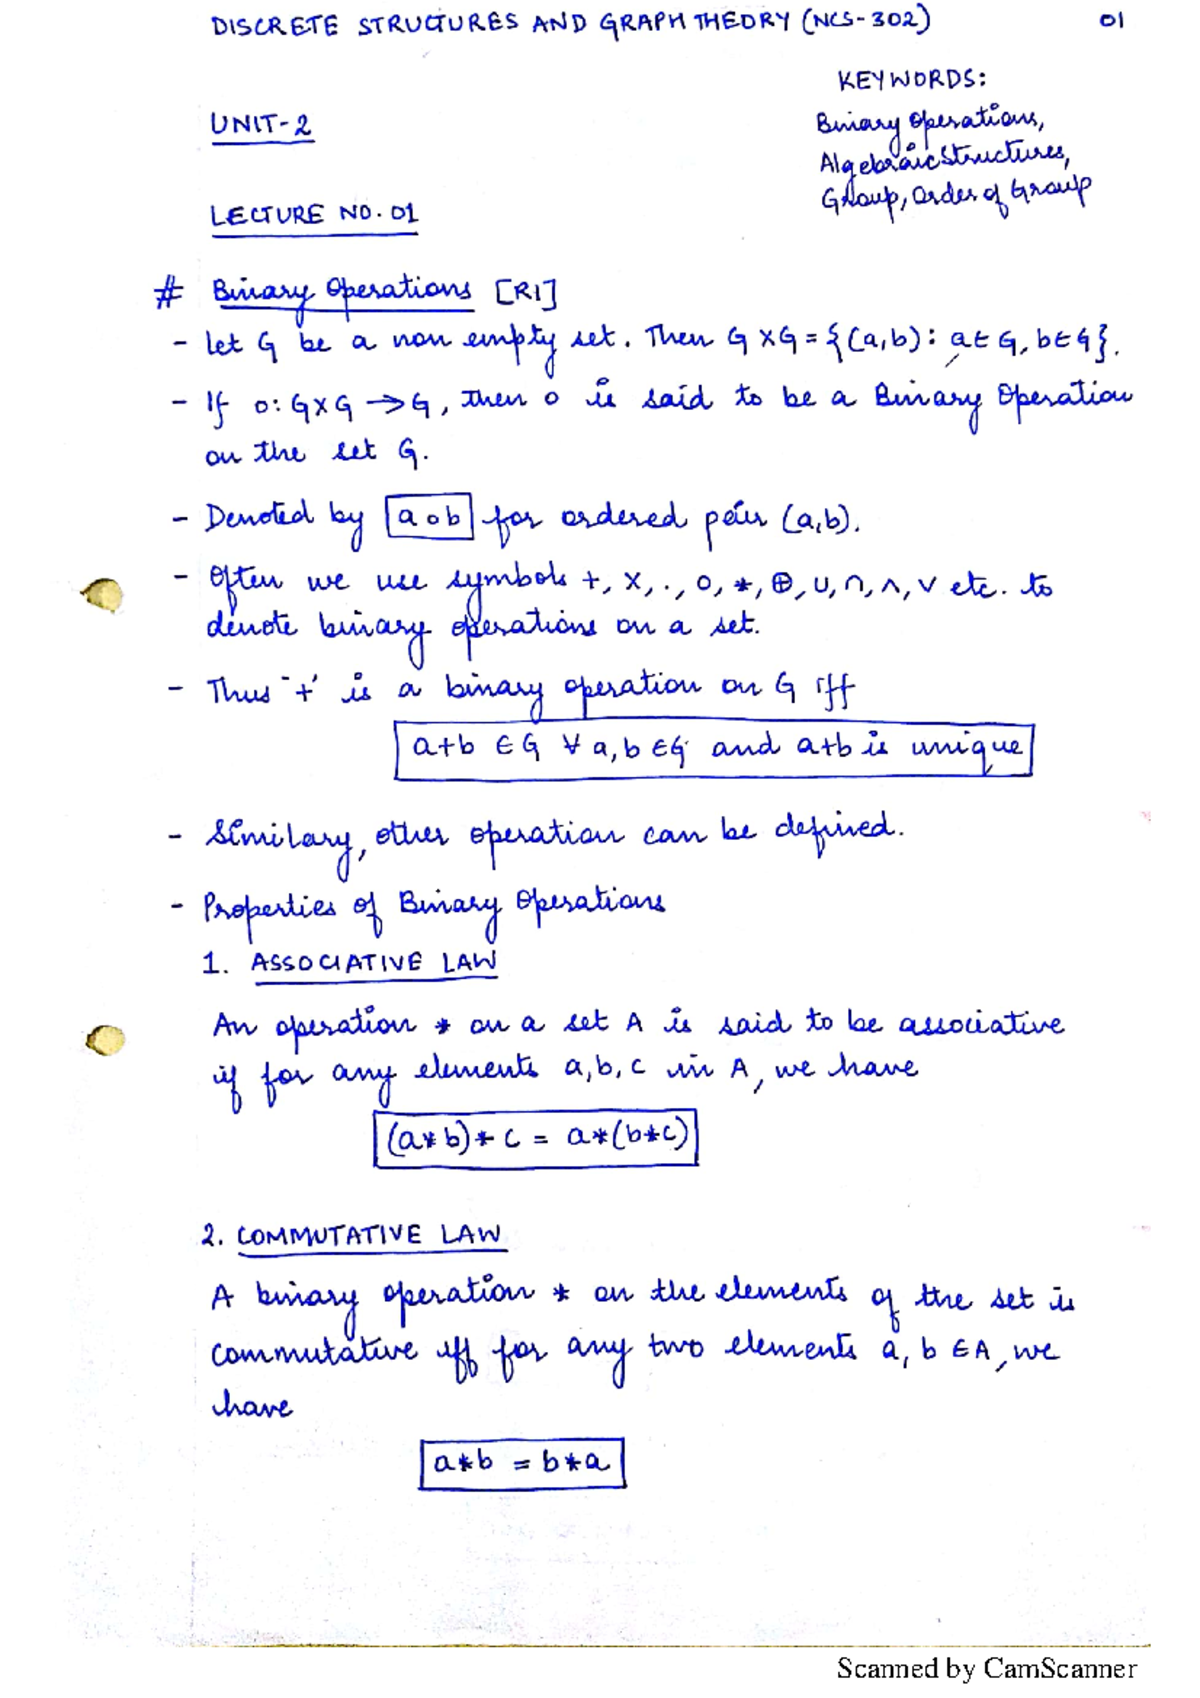 DISCRETE STRUCTURES AND GRAPH THEORY (NCS-302) 01
KEYWORDS:
Binary Operations,
Algebraic Structures,
Group, Order of Group
UNIT-2
LECTURE NO. 01
# Binary Operations [R1]
- Let G be a non empty set. Then G X G = {(a,b) : a ∈ G, b ∈ G}.
- If o: G X G → G, then o is said to be a Binary Operation
on the set G.
- Denoted by a o b for ordered pair (a,b).
- Often we use symbols +, X, ., o, *, ⊕, ∪, ∩, ∧, ∨ etc. to
denote binary operations on a set.
- Thus '+' is a binary operation on G iff
a+b ∈ G ∀ a, b ∈ G and a+b is unique
- Similary, other operation can be defined.
- Properties of Binary Operations
1. ASSOCIATIVE LAW
An operation * on a set A is said to be associative
if for any elements a, b, c in A, we have
(a*b)*c = a*(b*c)
2. COMMUTATIVE LAW
A binary operation * on the elements of the set is
commutative iff for any two elements a, b ∈ A, we
have
a*b = b*a
Scanned by CamScanner